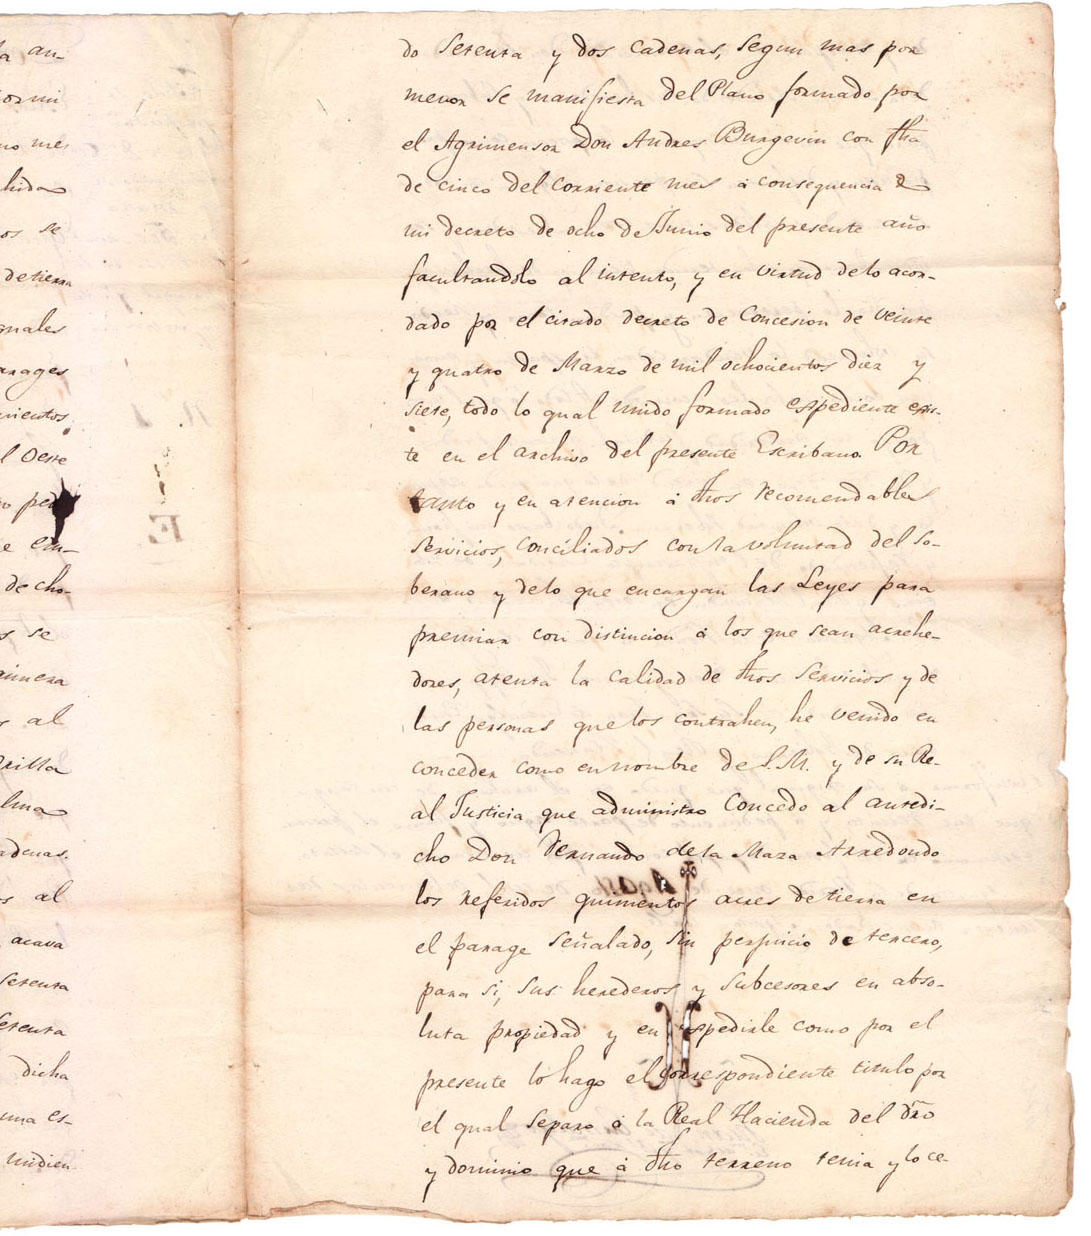 a an-
ormi
no mes
hida
os se
de tierra
nales
arages
mientos
l Oeste
o ped
e en-
de cho-
s se
imera
s al
rilla
lma
adenas.
s al
acava
Setenta
Setenta
dicha
una es-
midien-
do Setenta y dos cadenas, segun mas por
menor se manifiesta del Plano formado por
el Agrimensor Don Andres Burgevin con fha
de cinco del corriente mes á consequencia de
mi decreto de ocho de Junio del presente año
facultandolo al intento, y en virtud delo acor-
dado por el citado decreto de Concesion de veinte
y quatro de Marzo de mil ochocientos diez y
siete, todo lo qual unido formado espediente exis-
te en el archivo del presente Escribano. Por
tanto y en atencion á dhos recomendables
servicios, conciliados con la voluntad del So-
berano y delo que encargan las Leyes para
premiar con distincion á los que sean acrehe-
dores, atenta la calidad de dhos Servicios y de
las personas que los contrahen, he venido en
conceder como en nombre de S.M. y de su Re-
al Justicia que administro Concedo al antedi-
cho Don Fernando dela Maza Arredondo
los referidos quinientos acres de tierra en
el parage señalado, sin perjuicio de tercero,
para si, sus herederos y subcesores en abso-
luta propiedad y en espedirle como por el
presente lo hago el correspondiente titulo por
el qual separo á la Real Hacienda del dro
y dominio que á dho terreno tenia y loce-